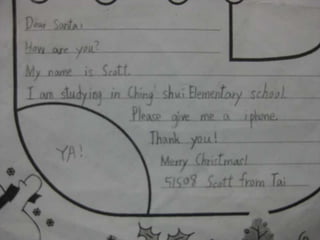 Dear Santa:
How are you?
My name is Scott.
I am studying in Ching' shui Elementary school.
Please give me a iphone.
Thank you!
YA!
Merry Christmas!
51508 Scott from Tai